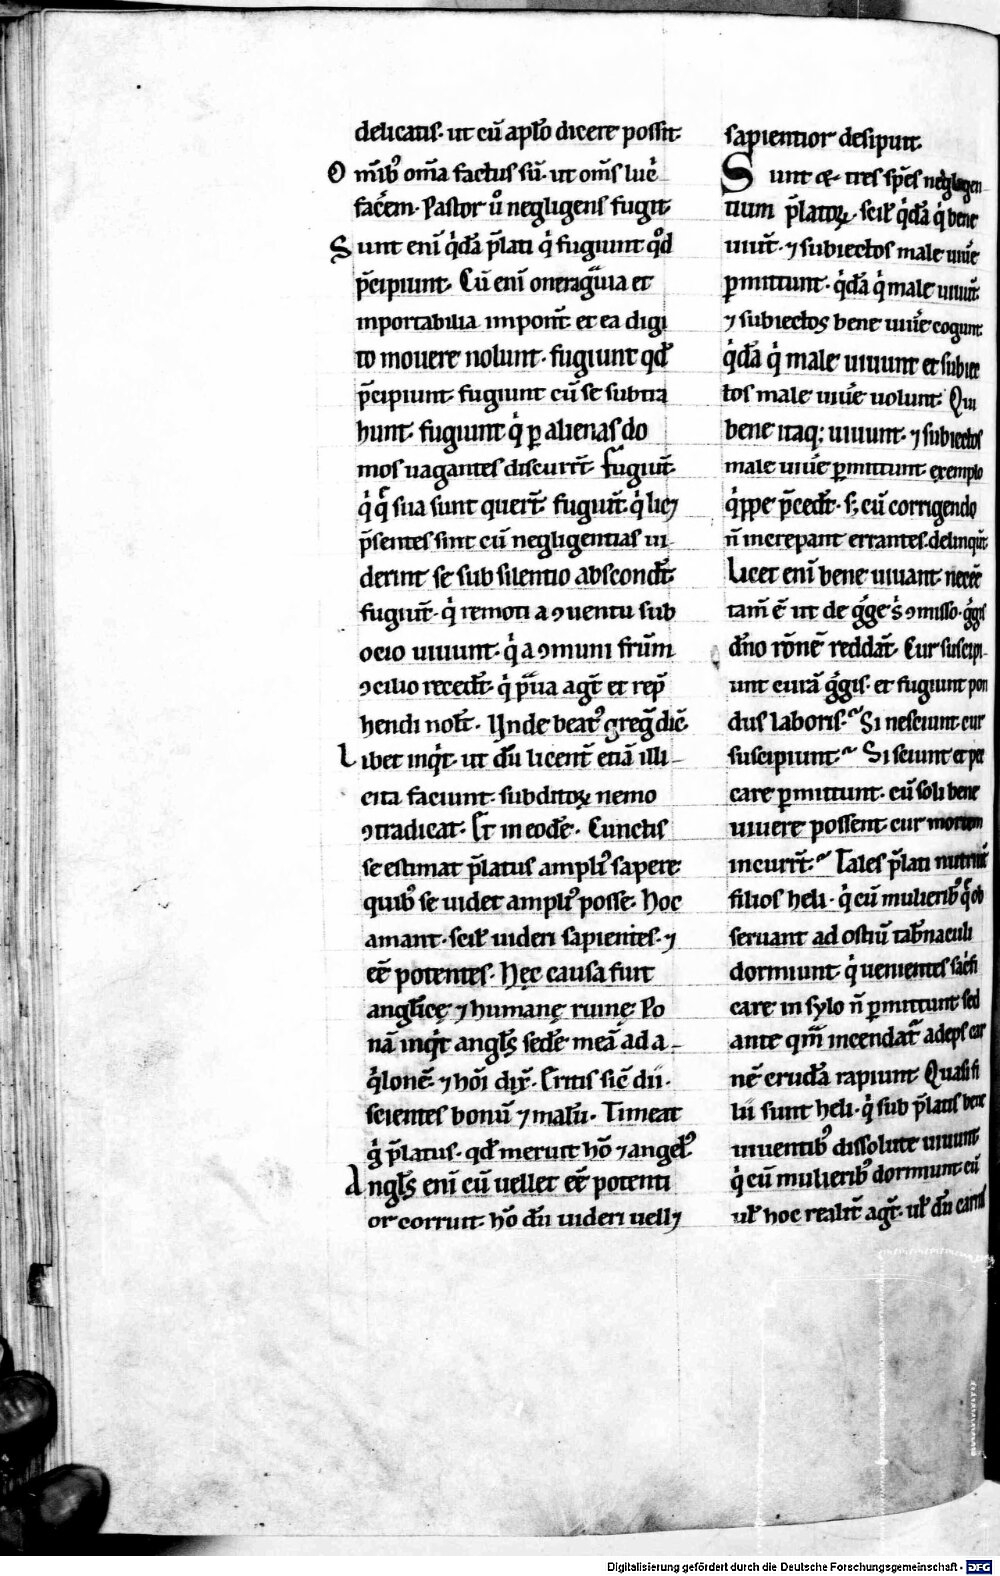 delicatis. ut cū apłō dicere possit.
Om̄ib; om̄a factus sū. ut om̄s luc̄
facẽm. Pastor ů negligens fugit.
Sunt enī q̇dā p̄lati q̇ fugiunt qd̊
p̄cipiunt. Cū enī oneragͣuia et
inportabilia impont̄. et ea digi
to mouere nolunt. fugiunt qd̄
p̄cipiunt. fugiunt cū se subtra
hunt. fugiunt q̇ ꝑ alienas do
mos uagantes discurrt̄. fugiut̄.
q̇ q̄ sua sunt quert̄. fugiut̄. q̇ licꝫ
p̄sentes sint cū negligentias ui
derint se sub silentio abscondt̄.
fugiut̄. q̇ remoti a ꝯuentu sub
ocio uiuunt. q̇ a ꝯmuni frūm
ꝯcilio recedt̄. q̇ pͣua agt̄ et rep̄
hendi nolt̄. Unde beat᾿ greg̃ dic̄.
Libet inqͥt. ut dū licent̄ etiā illi
cita faciunt. subditoꝝ nemo
ꝯtradicat. It̄ in eodē. Cunctis
se estimat p̄latus ampli᾿ sapere
quib; se uidet ampli᾿ posse. Hoc
amant. scil̄ uideri sapientes. ⁊
eē potentes. Hęc causa fuit
anglicę ⁊ humanę ruinę. Po
nā inqͥt angl̄s sedē meā ad a
qͥlonē. ⁊ hōi dix̄. Eritis sic̄ dii.
scientes bonū ⁊ malū. Timeat
g̊ p̄latus. qd̄ meruit hō ⁊ angel᾿.
Angl̄s enī cū uellet eē potenti
or corruit. hō dū uideri uellꝫ
sapientior desipuit.
Sunt & tres sp̄es neglegen
tium p̄latoꝝ. scil̄ q̇dā q̇ bene
uiut̄. ⁊ subiectos male uiūe
ꝑmittunt. q̇dā q̇ male uiuut̄
⁊ subiectos bene uiūe cogunt.
q̇dā q̇ male uiuunt et subiec
tos male uiūe uolunt. Qui
bene itaq; uiuunt. ⁊ subiectos
male uiūe ꝑmittunt. exemplo
qͥppe p̄cedt̄. s; cū corrigendo
n̄ increpant errantes. delinqut̄.
Licet enī bene uiuant. necēē
tam̄ ē ut de gͤge s̄ ꝯmisso. gͤgis
dn̄o rōnē reddāt. Cur suscipi
unt curā gͤgis. et fugiunt pon
dus laboris. Si nesciunt cur
suscipiunt. Si sciunt et pec
care ꝑmittunt. cū soli bene
uiuere possent. cur mortem
incurrt̄. Tales p̄lati nutriūt
filios heli. q̇ cū mulierib; q̄ ob
seruant ad ostiū tab̄naculi
dormiunt. q̇ uenientes sac̄fi
care in sylo n̄ ꝑmittunt sed
ante qm̄ incendat᾿ adeps car
nē crudā rapiunt. Quasi fi
lii sunt heli. q̇ sub p̄latis bene
uiuentib; dissolute uiuunt.
q̇ cū mulierib; dormiunt. cū
ul̄ hoc realit̄ agt̄. ul̄ dū carnis
Digitalisierung gefördert durch die Deutsche Forschungsgemeinschaft - DFG